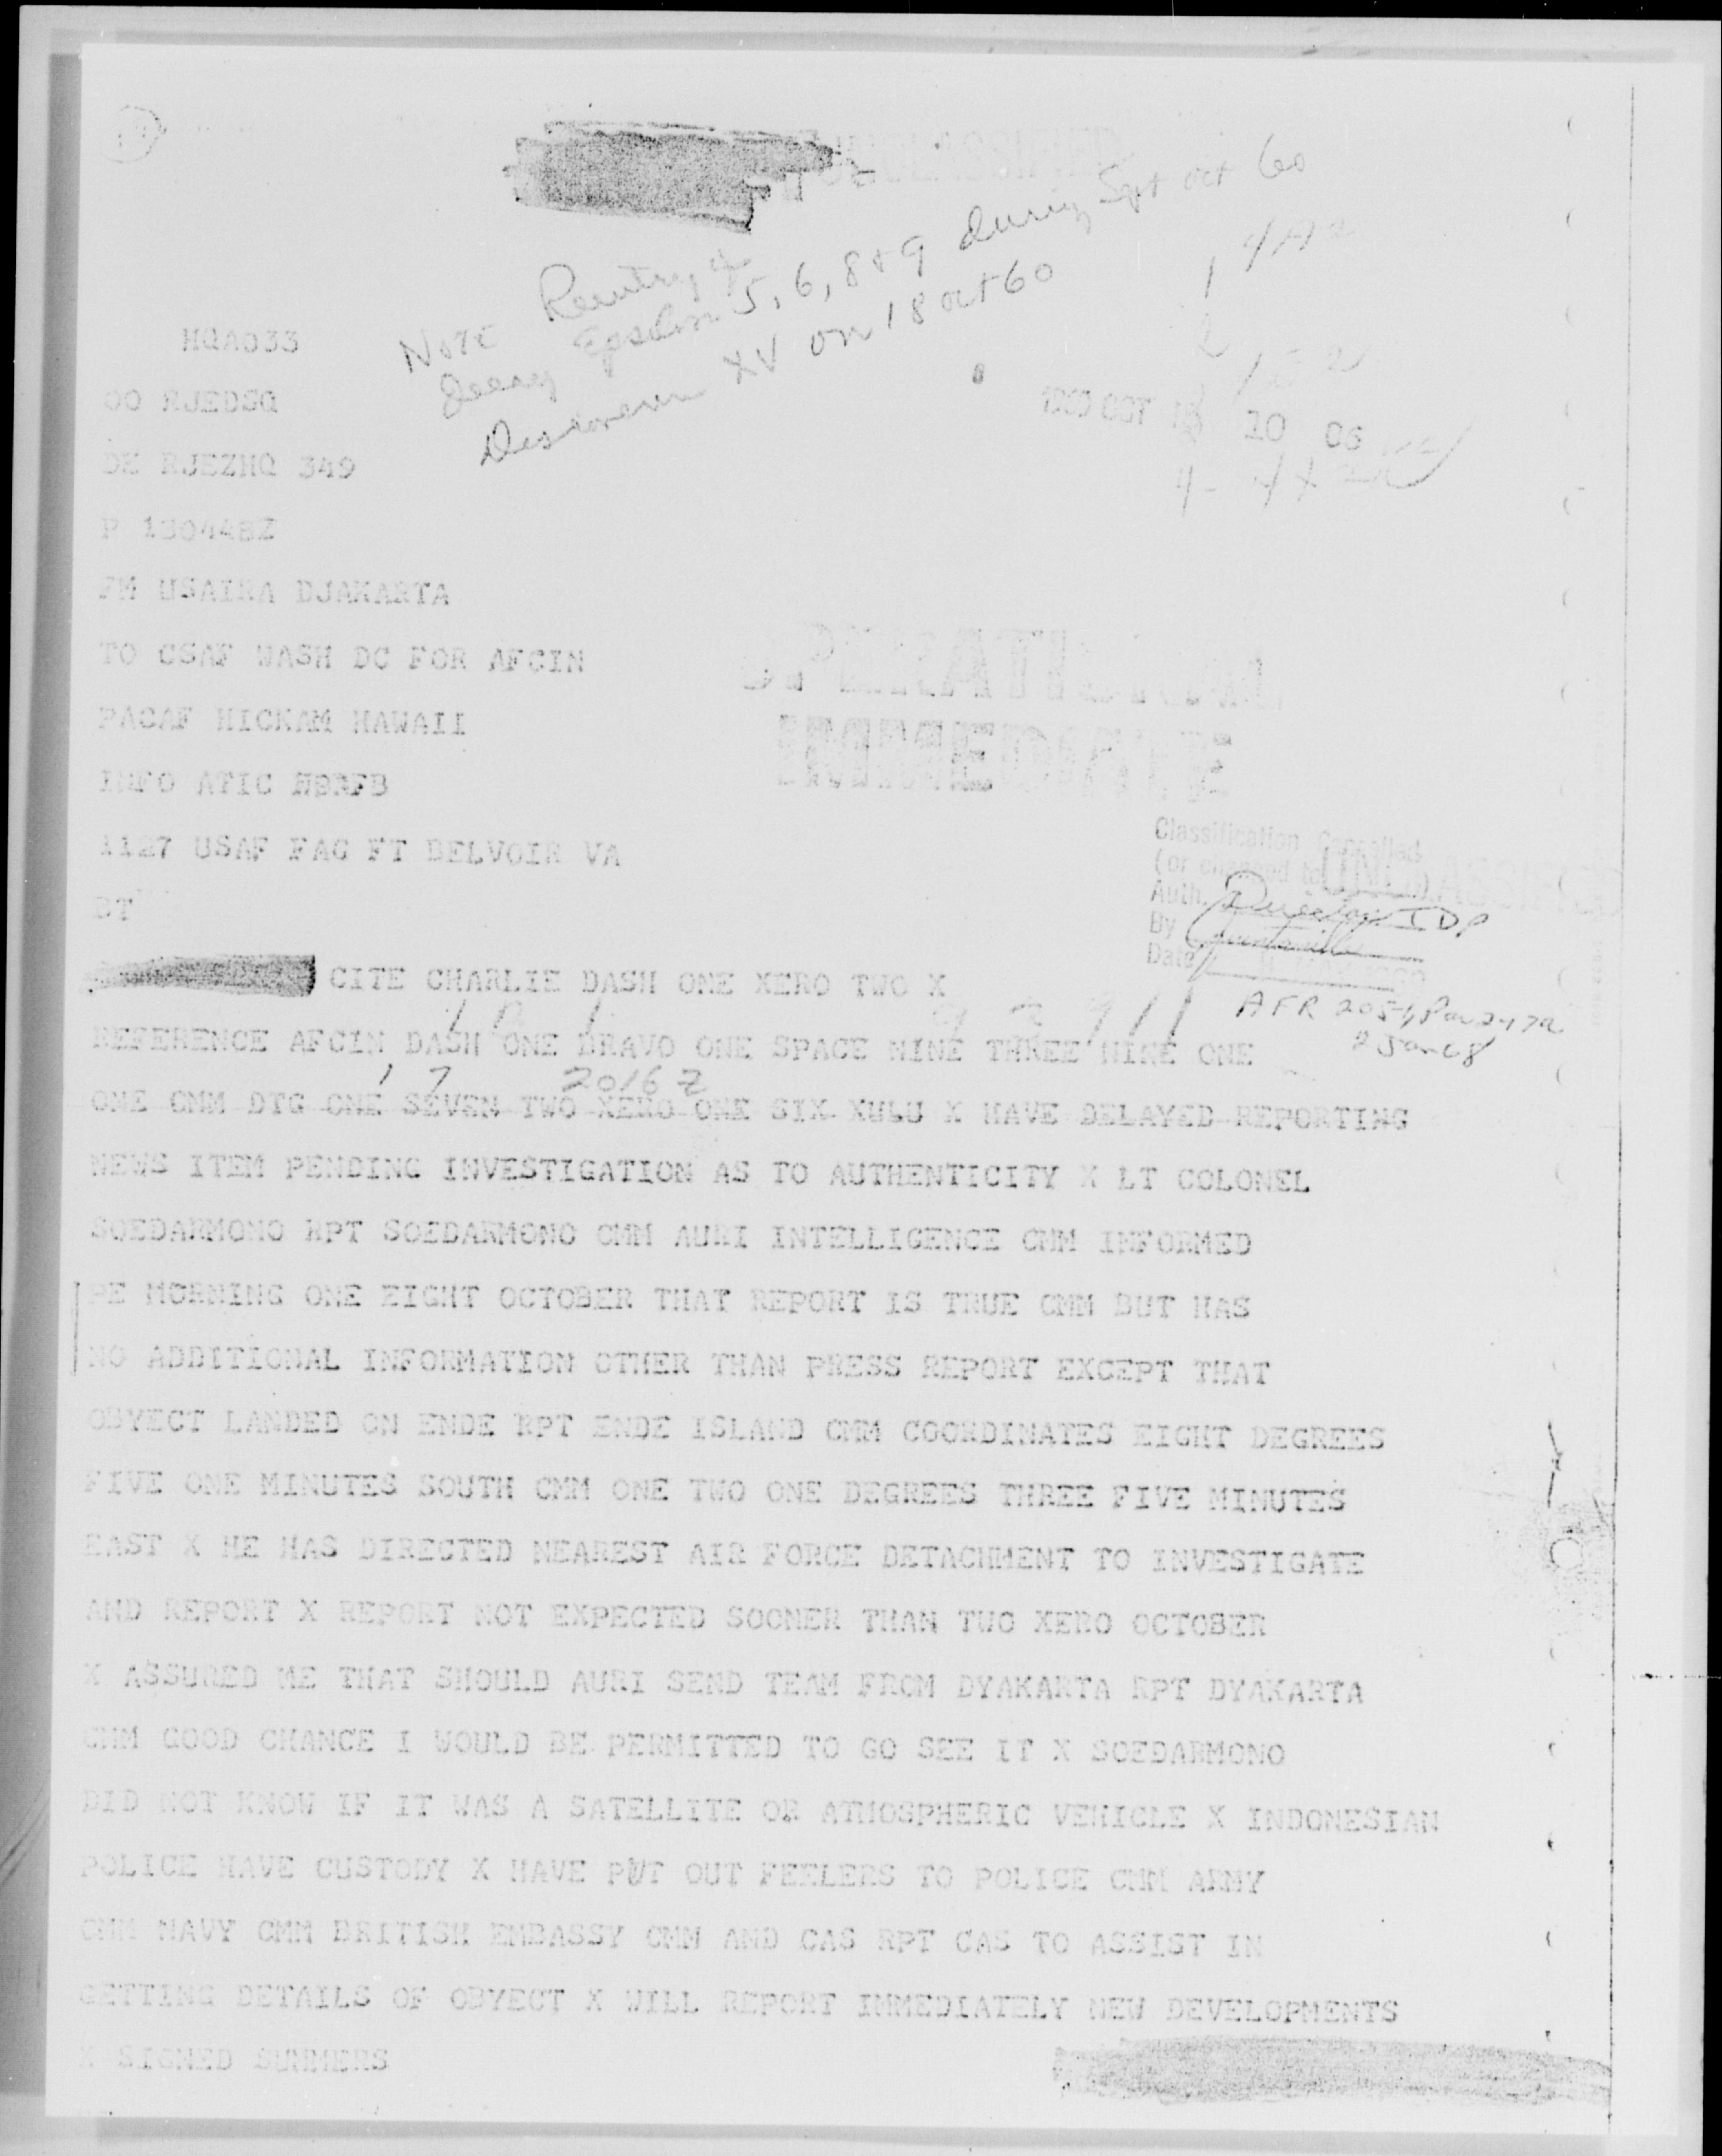 Note Reentry of
decay Epsilon 5, 6, 8 & 9 during Sept Oct 60
XV on 18 Oct 60
HQA033
OO RJEDSQ
1960 OCT 18 10 06
DE RJEZHQ 349
P 130448Z
FM USAIRA DJAKARTA
TO CSAF WASH DC FOR AFCIN
OPERATIONAL
PACAF HICKAM HAWAII
IMMEDIATE
INFO ATIC WPAFB
1127 USAF FAG FT BELVOIR VA
Classification Cancelled
(or changed to UNCLASSIFIED
Auth. Director IDP
By
Date
BT
CITE CHARLIE DASH ONE XERO TWO X
AFR 205-1, Par 2-17a
2 Jan 68
1 B 1 9 3 9 1 1
REFERENCE AFCIN DASH ONE BRAVO ONE SPACE NINE THREE NINE ONE
1 7 2016 Z
ONE CMM DTG ONE SEVEN TWO XERO ONE SIX XULU X HAVE DELAYED REPORTING
NEWS ITEM PENDING INVESTIGATION AS TO AUTHENTICITY X LT COLONEL
SOEDARMONO RPT SOEDARMONO CMM AURI INTELLIGENCE CMM INFORMED
ME MORNING ONE EIGHT OCTOBER THAT REPORT IS TRUE CMM BUT HAS
NO ADDITIONAL INFORMATION OTHER THAN PRESS REPORT EXCEPT THAT
OBYECT LANDED ON ENDE RPT ENDE ISLAND CMM COORDINATES EIGHT DEGREES
FIVE ONE MINUTES SOUTH CMM ONE TWO ONE DEGREES THREE FIVE MINUTES
EAST X HE HAS DIRECTED NEAREST AIR FORCE DETACHMENT TO INVESTIGATE
AND REPORT X REPORT NOT EXPECTED SOONER THAN TWO XERO OCTOBER
X ASSURED ME THAT SHOULD AURI SEND TEAM FROM DYAKARTA RPT DYAKARTA
CMM GOOD CHANCE I WOULD BE PERMITTED TO GO SEE IT X SOEDARMONO
DID NOT KNOW IF IT WAS A SATELLITE OR ATMOSPHERIC VEHICLE X INDONESIAN
POLICE HAVE CUSTODY X HAVE PUT OUT FEELERS TO POLICE CMM ARMY
CMM NAVY CMM BRITISH EMBASSY CMM AND CAS RPT CAS TO ASSIST IN
GETTING DETAILS OF OBYECT X WILL REPORT IMMEDIATELY NEW DEVELOPMENTS
X SIGNED SUMMERS